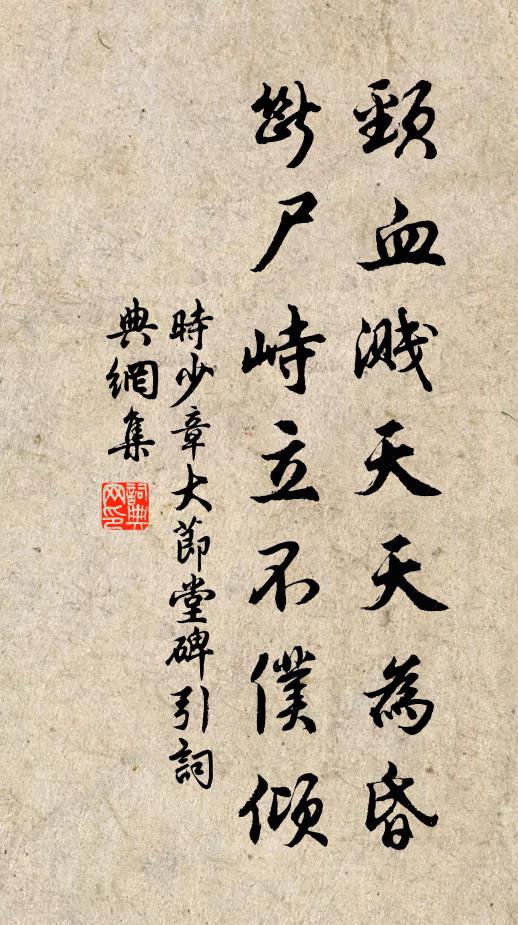 頸血濺天天為昏
斷尸峙立不僕傾
時少章大節堂碑引詞
典網集
詞典
网印